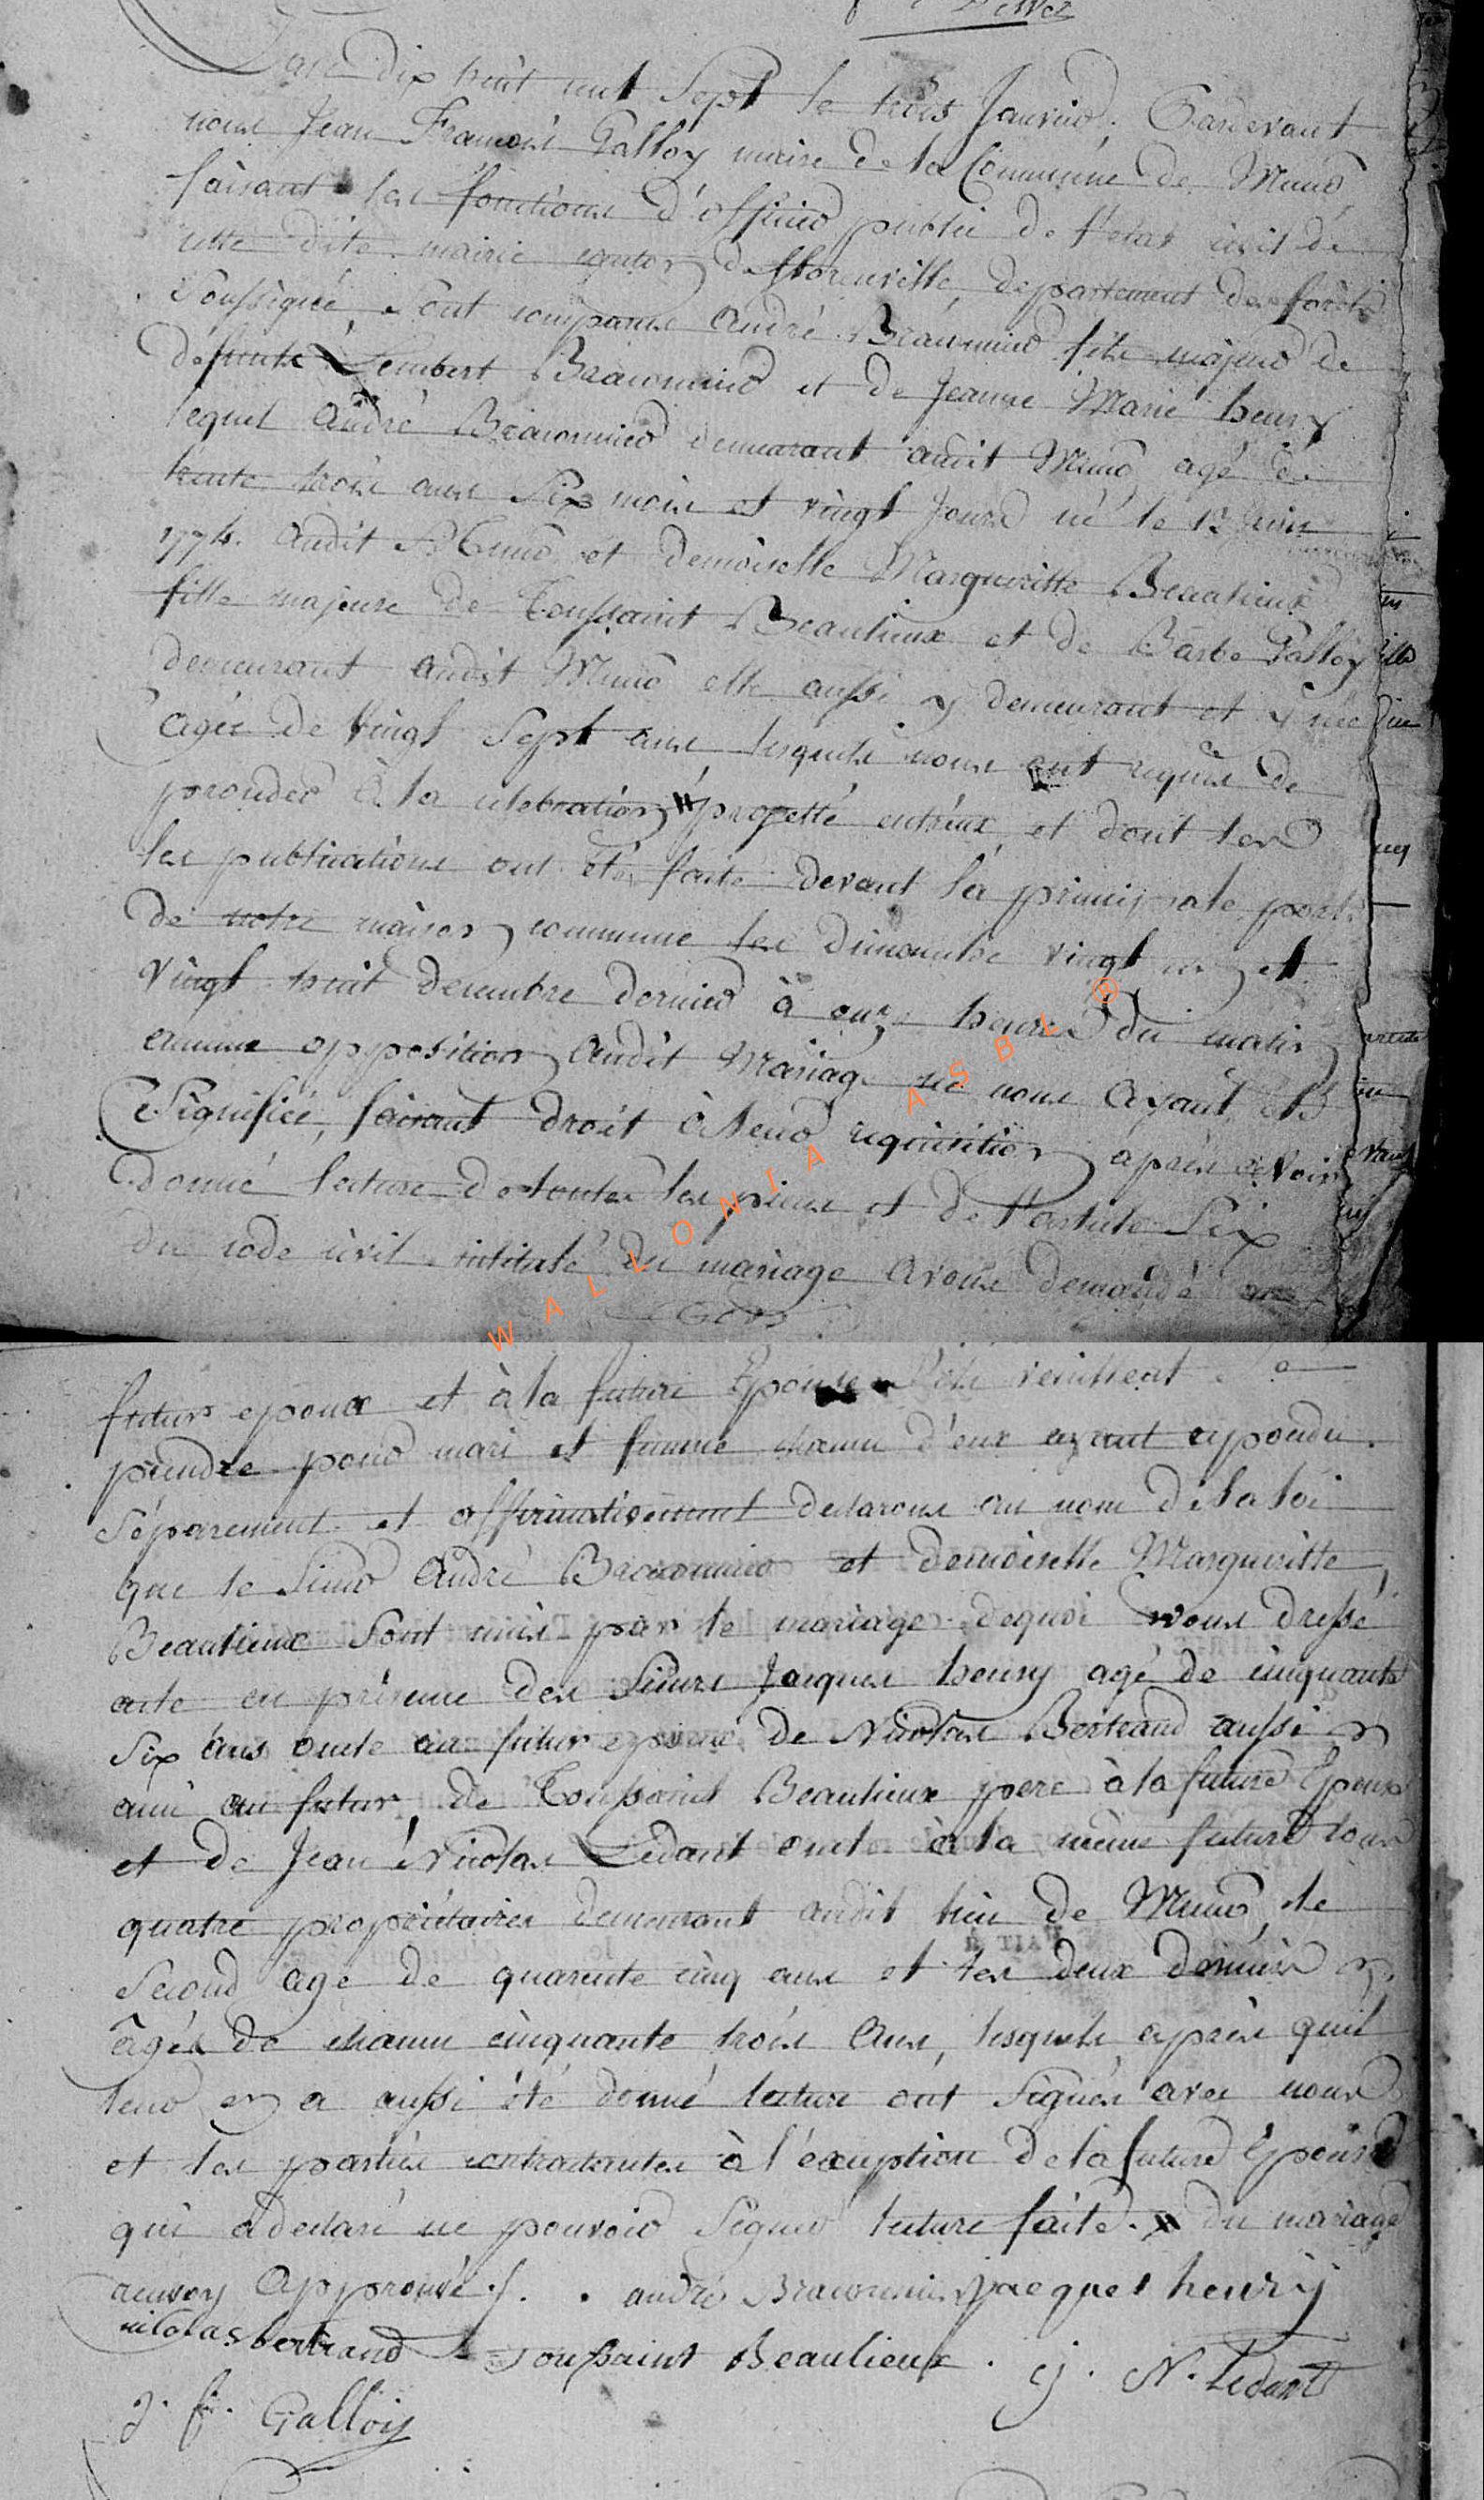 L'an dix huit cent Sept le trois Janvier. Pardevant
nous Jean François Galloy maire de la Commune de Muno
faisant les fonctions d'officier public de l'etat civil de
cette dite mairie canton de florenville, departement des forêts
Soussigné, Sont comparus André Braconnier fils majeur de
défunts Lembert Braconnier et de Jeanne Marie henry
lequel André Braconnier demeurant audit Muno agé de
trente trois ans Six mois et vingt Jours né le 12 Juin
1774. audit Muno et demoiselle Margueritte Beaulieux
fille majeure de Toussaint Beaulieux et de Barbe Galloy
demeurant audit Muno elle aussi y demeurant et y née
agée de vingt Sept ans lesquels nous ont requis de
proceder à la celebration # projetté entréux, et dont les
les publications ont été faite devant la principale porte
de notre maison commune les dimanche vingt un et
vingt huit decembre dernier à onze heures du matin
aucune opposition audit Mariage ne nous ayant été
Signifiée, faisant droit à leur requisition, après avoir
donné lecture de toutes les pieces et de l'article Six
du code civil intitulé du mariage avons demandé au
WALLONIA ASBL ®
futur epoux et à la future Epouse s'ils veuillent se
prendre pour mari et femme chacun d'eux ayant repondu
séparement et affirmativement declarons au nom de la loi
que le Sieur André Braconnier et demoiselle Margueritte
Beaulieux Sont unis par le mariage dequoi avons dressé
acte en présence des Sieurs Jacques henry agé de cinquante
Six ans oncle au futur epoux de Nicolas Bertrand aussi
ami au futur, de Toussaint Beaulieux pere à la future Epouse
et de Jean Nicolas Ledant oncle à la même future tous
quatre propriétaires demeurant audit lieu de Muno, le
Second agé de quarente cinq ans et les deux derniers
âgés de chacun cinquante trois ans, lesquels après quil
leur en a aussi été donné lecture ont Signés avec nous
et les parties contractantes à l'exception de la future Epouse
qui a declaré ne pouvoir Signer lecture faite. # du mariage
renvoy Approuvé. andré Braconnier jacques henrÿ
nicolas bertrand Toussaint Beaulieux. j. N. Ledant
j. f. Galloy